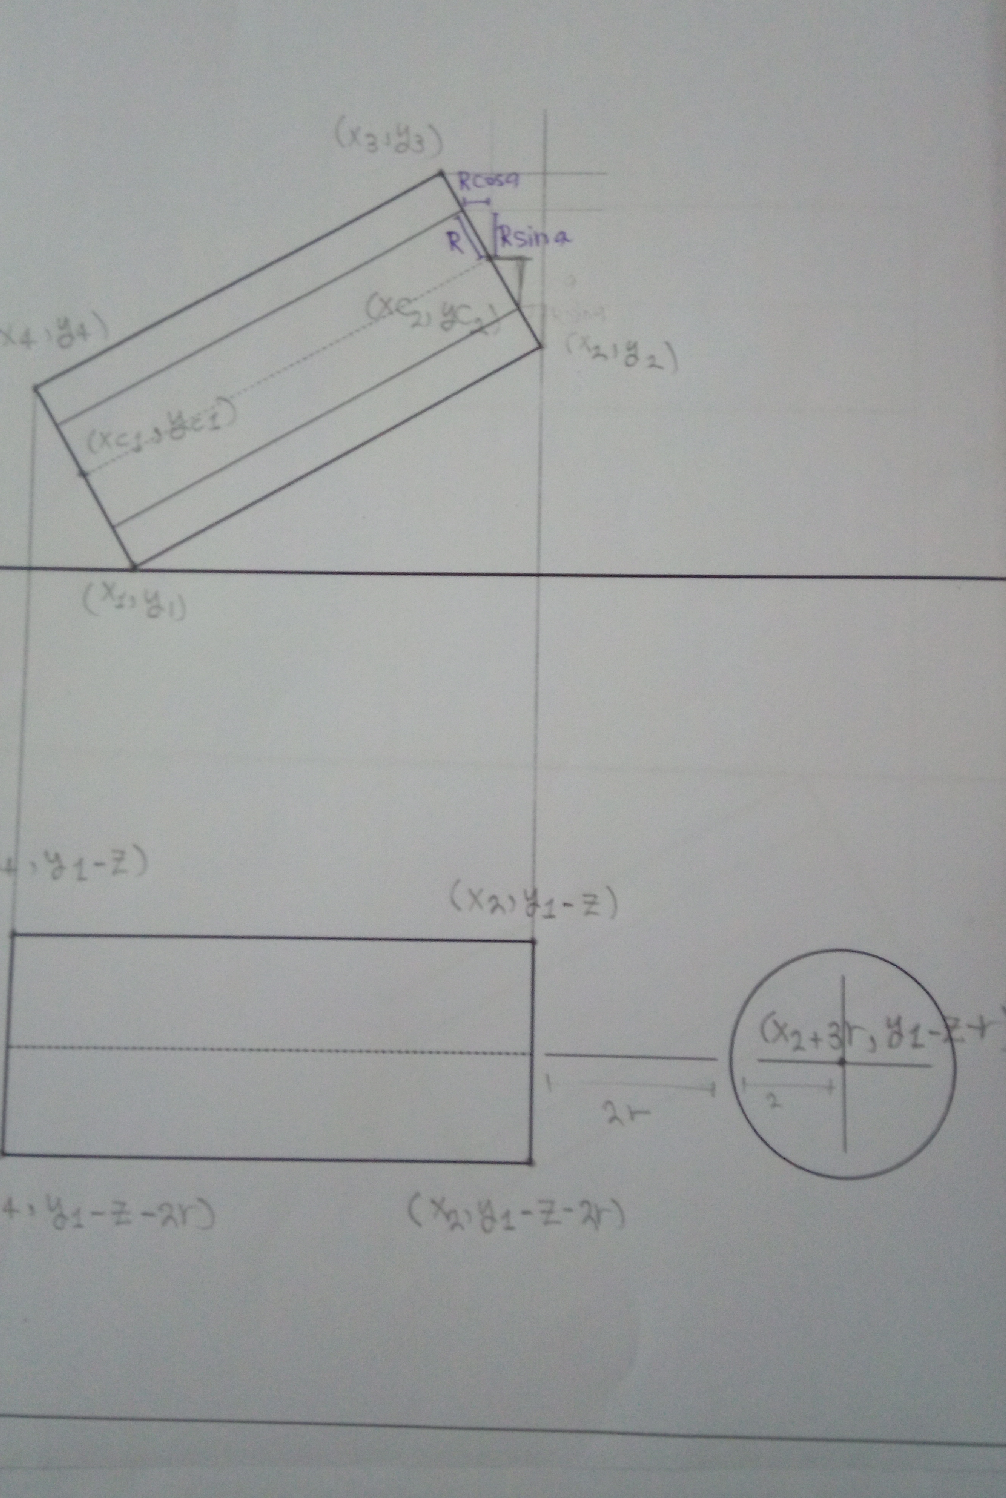 (x3,y3)
Rcosa
R
Rsina
(xc2,yc2)
x4,y4)
(x2,y2)
(xc1,yc1)
(x1,y1)
4,y1-z)
(x2,y1-z)
(x2+3r,y1-z+r
2r
2
4,y1-z-2r)
(x2,y1-z-2r)